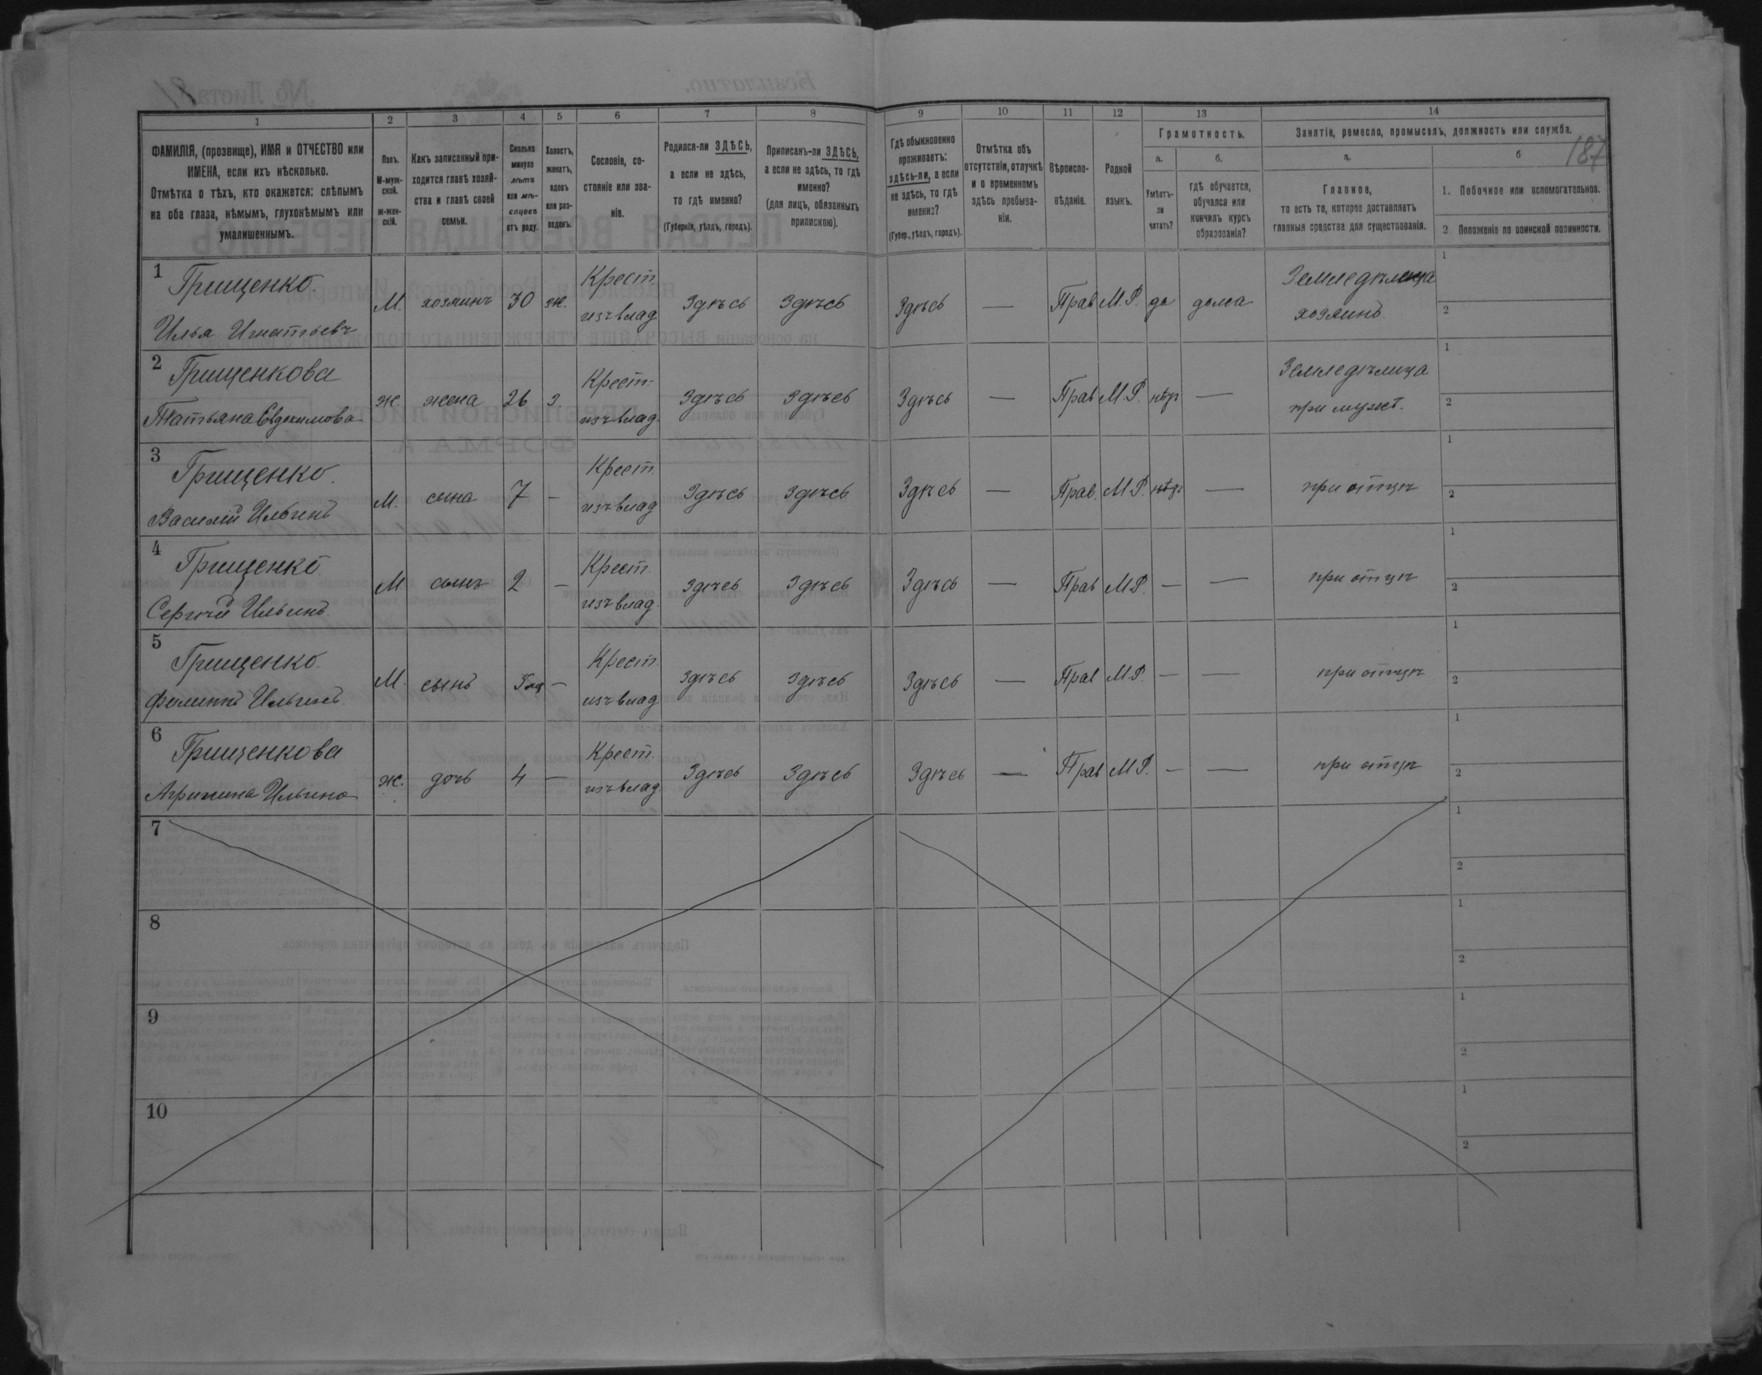 1
2
3
4
5
6
7
8
9
10
11
12
13
14
ФАМИЛІЯ, (прозвище), ИМЯ и ОТЧЕСТВО или
ИМЕНА, если ихъ нѣсколько.
Отмѣтка о тѣхъ, кто окажется: слѣпымъ
на оба глаза, нѣмымъ, глухонѣмымъ или
умалишеннымъ.
Полъ.
М-муж-
ской.
ж-жен-
скій.
Какъ записанный при-
ходится главѣ хозяй-
ства и главѣ своей
семьи.
Сколько
минуло
лѣтъ
или мѣ-
сяцевъ
отъ роду.
Холостъ,
женатъ,
вдовъ
или раз-
веденъ.
Сословіе, со-
стояніе или зва-
ніе.
Родился-ли ЗДѢСЬ,
а если не здѣсь,
то гдѣ именно?
(Губернія, уѣздъ, городъ).
Приписанъ-ли ЗДѢСЬ,
а если не здѣсь, то гдѣ
именно?
(для лицъ, обязанныхъ
припискою).
Гдѣ обыкновенно
проживаетъ:
здѣсь-ли, а если
не здѣсь, то гдѣ
именно?
(Губер., уѣздъ, городъ).
Отмѣтка объ
отсутствіи, отлучкѣ
и о временномъ
здѣсь пребыва-
ніи.
Вѣроиспо-
вѣданіе.
Родной
языкъ.
Грамотность.
а.
б.
Умѣетъ-
ли
читать?
гдѣ обучается,
обучался или
кончилъ курсъ
образованія?
Занятіе, ремесло, промыселъ, должность или служба.
187
а.
б
Главное,
то есть то, которое доставляетъ
главныя средства для существованія.
1. Побочное или вспомогательное.
2 Положеніе по воинской повинности.
1
Грищенко
Илья Игнатьевъ
М. хозяинъ 30 ж.
Крест.
изъ влад
Здѣсь Здѣсь Здѣсь — Прав М.Р. да дома
Земледѣлецъ
хозяинъ
1
2
2
Грищенкова
Татьяна Евдокимова
ж. жена 26 з.
Крест.
изъ влад.
Здѣсь Здѣсь Здѣсь — Прав М.Р. нѣтъ —
Земледѣлица
при мужѣ.
1
2
3
Грищенко.
Василій Ильинъ
М. сына 7 —
Крест
изъ влад
Здѣсь Здѣсь Здѣсь — Прав. М.Р. нѣтъ —
при отцѣ
1
2
4
Грищенко
Сергѣй Ильинъ
М сынъ 2 —
Крест.
изъ влад.
Здѣсь Здѣсь Здѣсь — Прав М.Р. — —
при отцѣ
1
2
5
Грищенко.
Филиппъ Ильинъ
М. сынъ —
Крест
изъ влад
Здѣсь Здѣсь Здѣсь — Прав М.Р. — —
при отцѣ
1
2
6
Грищенкова
Агрипина Ильина
ж. дочь 4 —
Крест.
изъ влад
Здѣсь Здѣсь Здѣсь — Прав М.Р. — —
при отцѣ
1
2
7
1
2
8
1
2
9
1
2
10
1
2